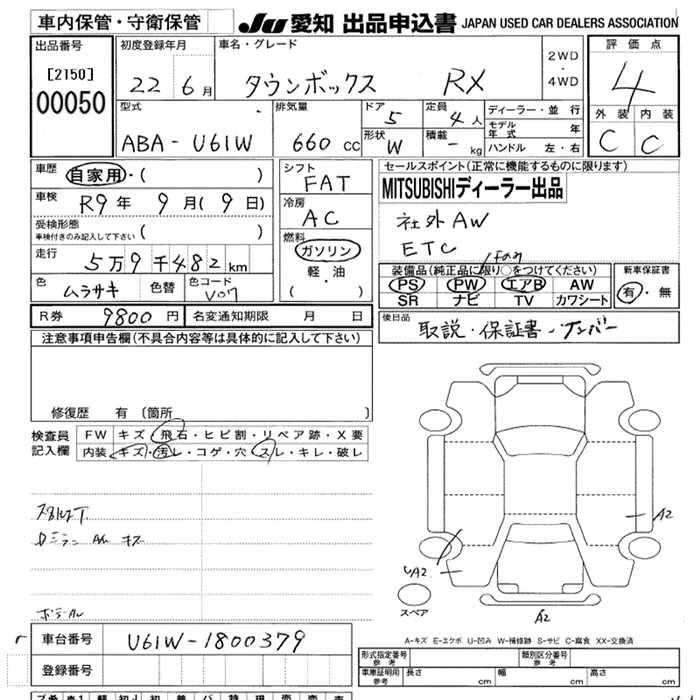 車内保管・守衛保管 JU 愛知 出品申込書 JAPAN USED CAR DEALERS ASSOCIATION
出品番号 初度登録年月 車名・グレード 評価点
[2150] 22 6月 タウンボックス RX 2WD・4WD 4
00050
型式 排気量 ドア 5 定員 4人 ディーラー・並行 外装 内装
モデル年式 年
ABA-U61W 660cc 形状 W 積載 - kg ハンドル 左・右 C C
車歴 自家用・( ) シフト FAT セールスポイント(正常に機能するものに限ります)
MITSUBISHIディーラー出品
車検 R9年 9月(9日) 冷房 AC 社外AW
受検形態 車検付きのみ記入して下さい ( ) ETC
走行 5万9千482km 燃料 ガソリン・軽油・( )
装備品(純正品に限り○をつけてください) 新車保証書
PS PW エアB AW 有・無
SR ナビ TV カワシート
色 ムラサキ 色替 色コード
R券 9800円 名変通知期限 月 日 後日品 取説・保証書・ナンバー
注意事項申告欄(不具合内容等は具体的に記入して下さい)
修復歴 有 (箇所 )
検査員記入欄 FW キズ・飛石・ヒビ割・リペア跡・X要
内装 キズ・汚レ・コゲ・穴・スレ・キレ・破レ
A2
A2
スペア
A2
A-キズ E-エクボ U-凹み W-補修跡 S-サビ C-腐食 XX-交換済
車台番号 U61W-1800379
登録番号
形式指定番号 参考 類別区分番号 参考
車庫証明用 参考 長さ cm 幅 cm 高さ cm